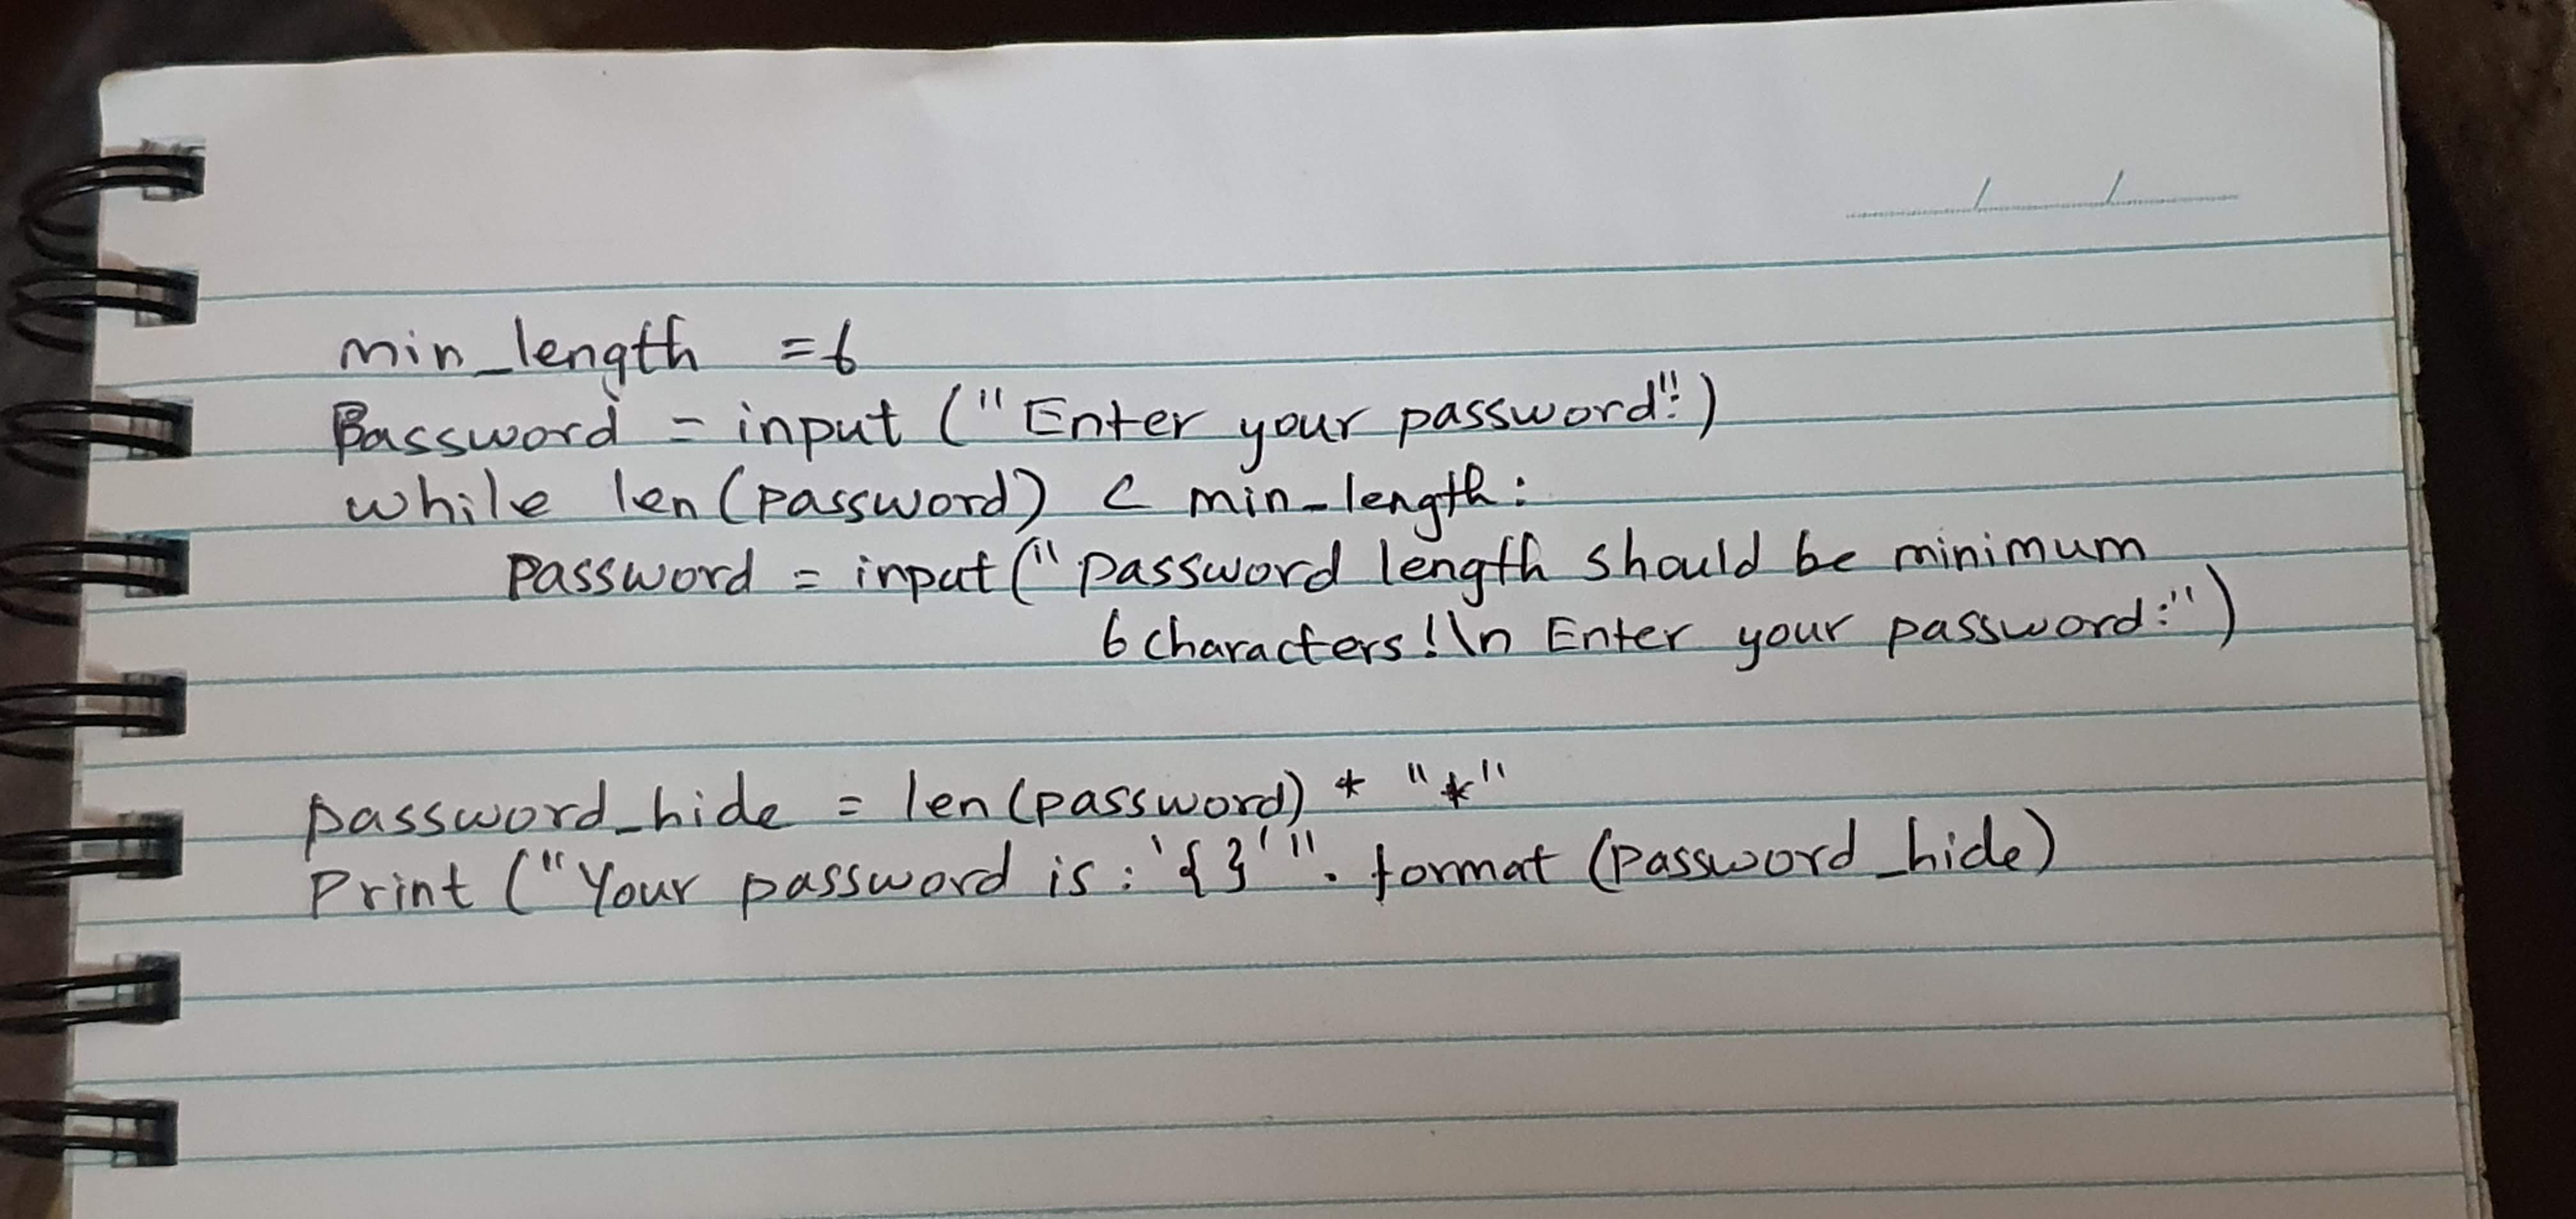 min_length =6
Password = input ("Enter your password:")
while len(password) < min_length:
password = input("password length should be minimum
6 characters!\n Enter your password:")
password_hide = len(password) * "*"
Print ("Your password is: '{}'". format (password_hide)